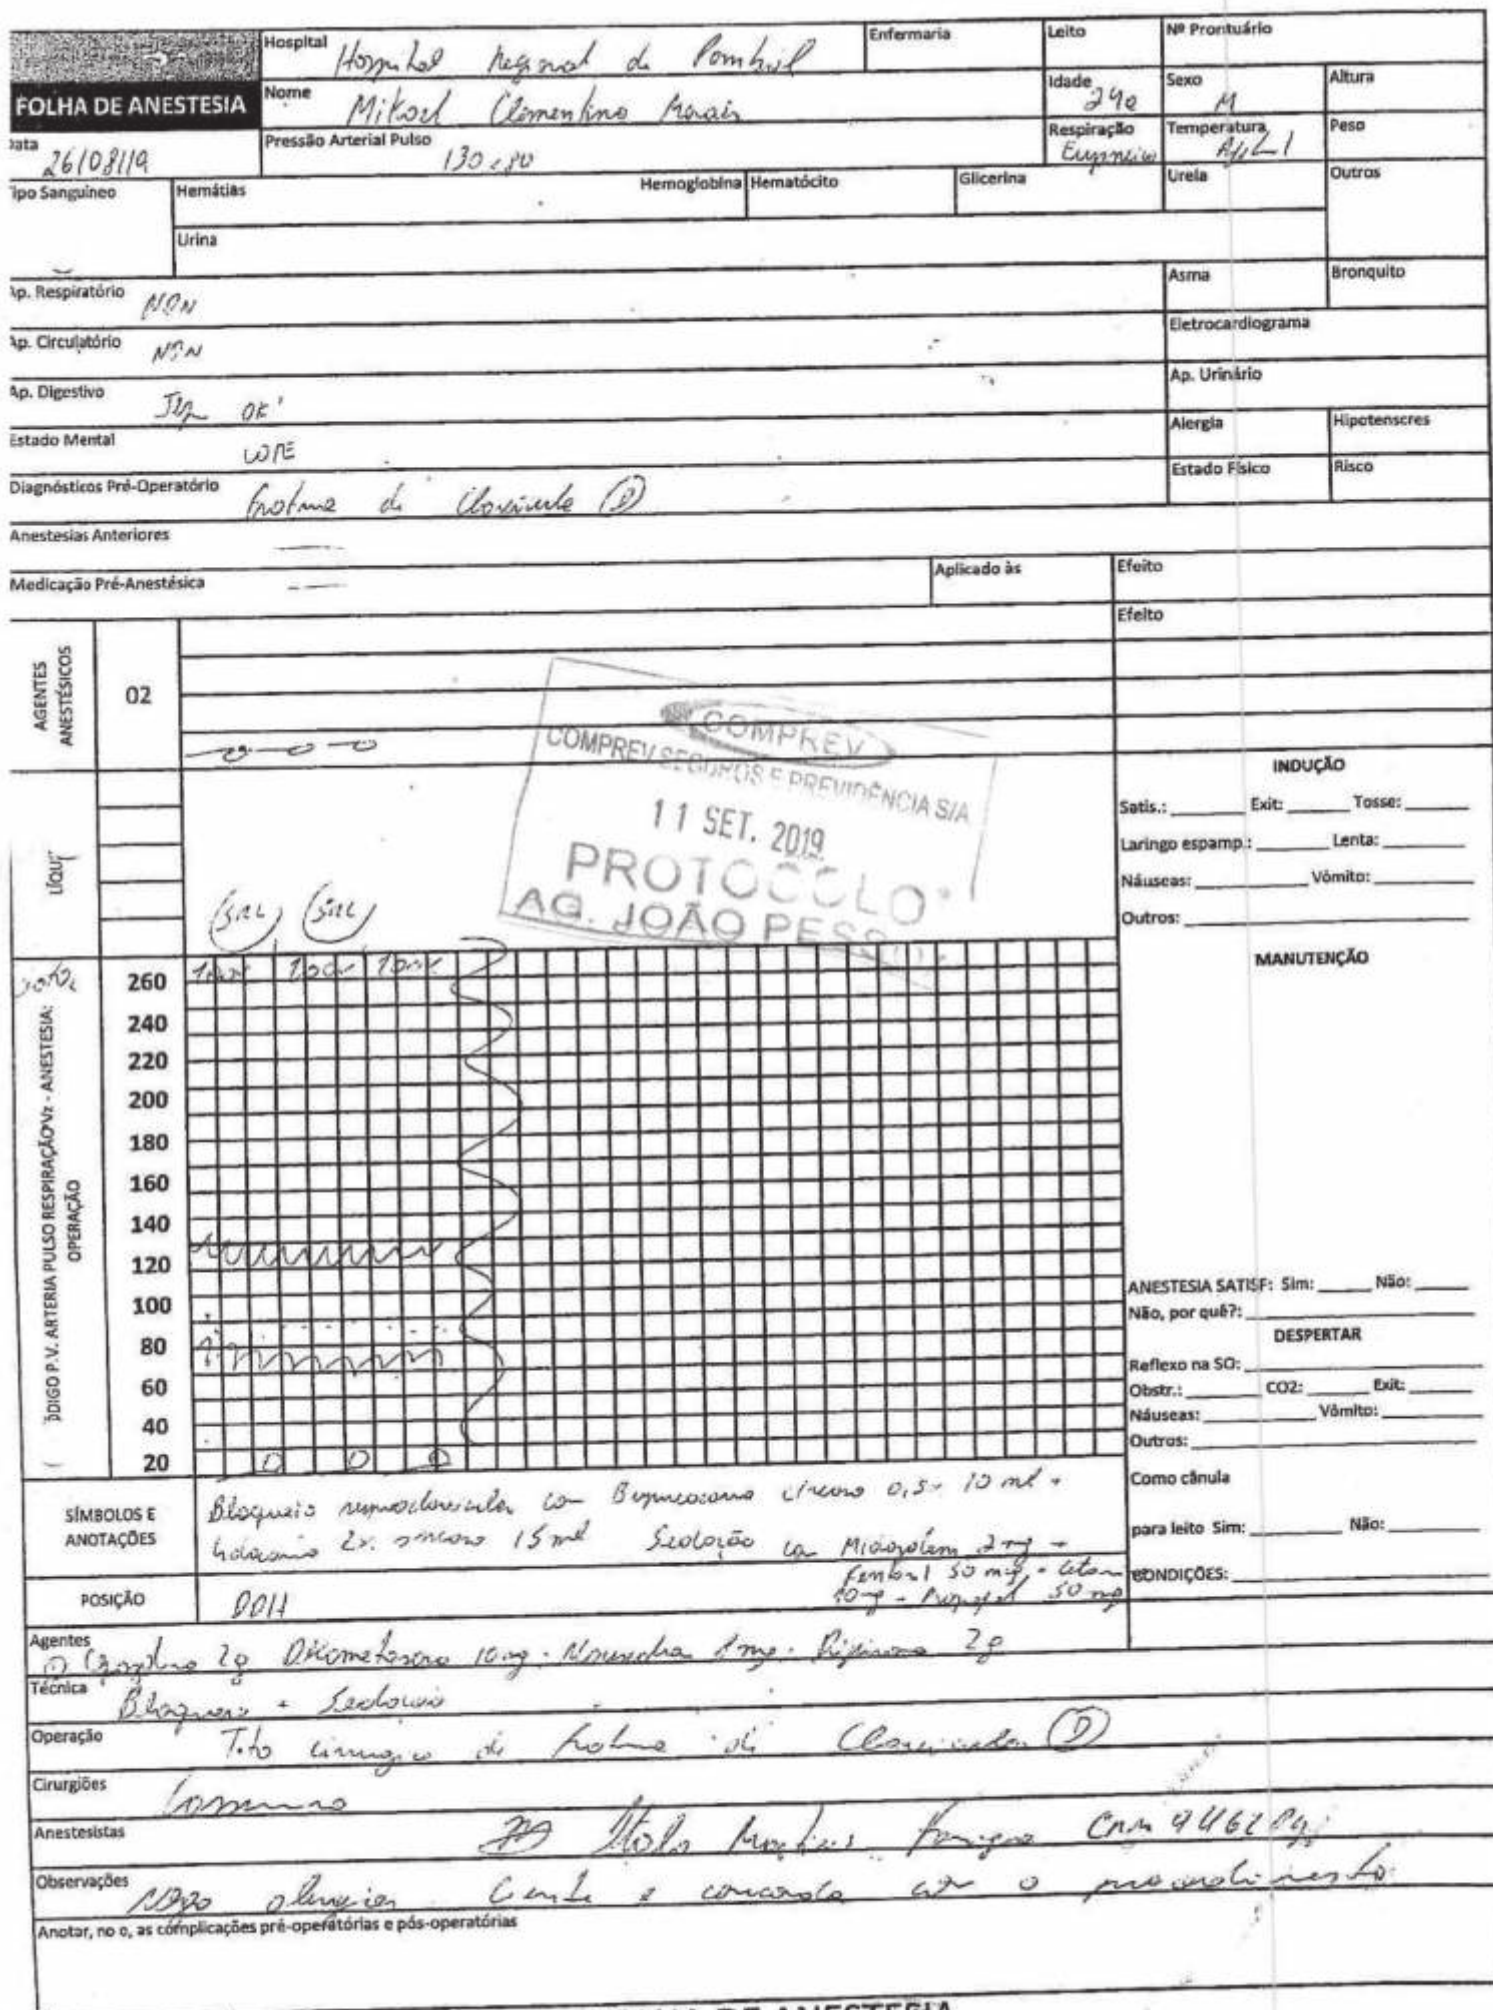 Hospital Hospital Regional de Pombal Enfermaria Leito Nº Prontuário
FOLHA DE ANESTESIA
Nome Mikael Clementino Morais Idade 24a Sexo M Altura
Data 26/08/19 Pressão Arterial Pulso 130x80 Respiração Eupneico Temperatura Peso
Tipo Sanguíneo Hemátias Hemoglobina Hematócito Glicerina Urela Outros
Urina
Ap. Respiratório NDN Asma Bronquito
Eletrocardiograma
Ap. Circulatório NDN
Ap. Urinário
Ap. Digestivo OK
Alergia Hipotenscres
Estado Mental LOTE
Estado Físico Risco
Diagnósticos Pré-Operatório Fratura de Clavícula (D)
Anestesias Anteriores
Medicação Pré-Anestésica Aplicado às Efeito
Efeito
AGENTES ANESTÉSICOS
02
COMPREV
COMPREV SEGUROS E PREVIDÊNCIA S/A
11 SET. 2019
PROTOCOLO
AG. JOÃO PESSOA
INDUÇÃO
Satis.: Exit: Tosse:
Laringo espamp.: Lenta:
Náuseas: Vômito:
Outros:
LÍQUI
SRL SRL
MANUTENÇÃO
260
240
220
200
180
160
140
120
100
80
60
40
20
ÓDIGO P.V. ARTERIA PULSO RESPIRAÇÃO Vz - ANESTESIA:
OPERAÇÃO
ANESTESIA SATISF: Sim: Não:
Não, por quê?:
DESPERTAR
Reflexo na SO:
Obstr.: CO2: Exit:
Náuseas: Vômito:
Outros:
Como cânula
para leito Sim: Não:
CONDIÇÕES:
SÍMBOLOS E ANOTAÇÕES
Bloqueio com Bupivacaina 0,5% 10 ml +
Lidocaína 2% 15 ml Sedação com Midazolam 2 mg +
Fentanil 50 mcg +
Propofol 50 mg
POSIÇÃO DDH
Agentes 2g Dexametasona 10 mg Dipirona 2g
Técnica Bloqueio + Sedação
Operação Tto cirurgico de fratura de Clavícula (D)
Cirurgiões
Anestesistas Italo CRM
Observações Nego alergias Ciente e concorda com o procedimento
Anotar, no o, as complicações pré-operatórias e pós-operatórias
DE ANESTESIA